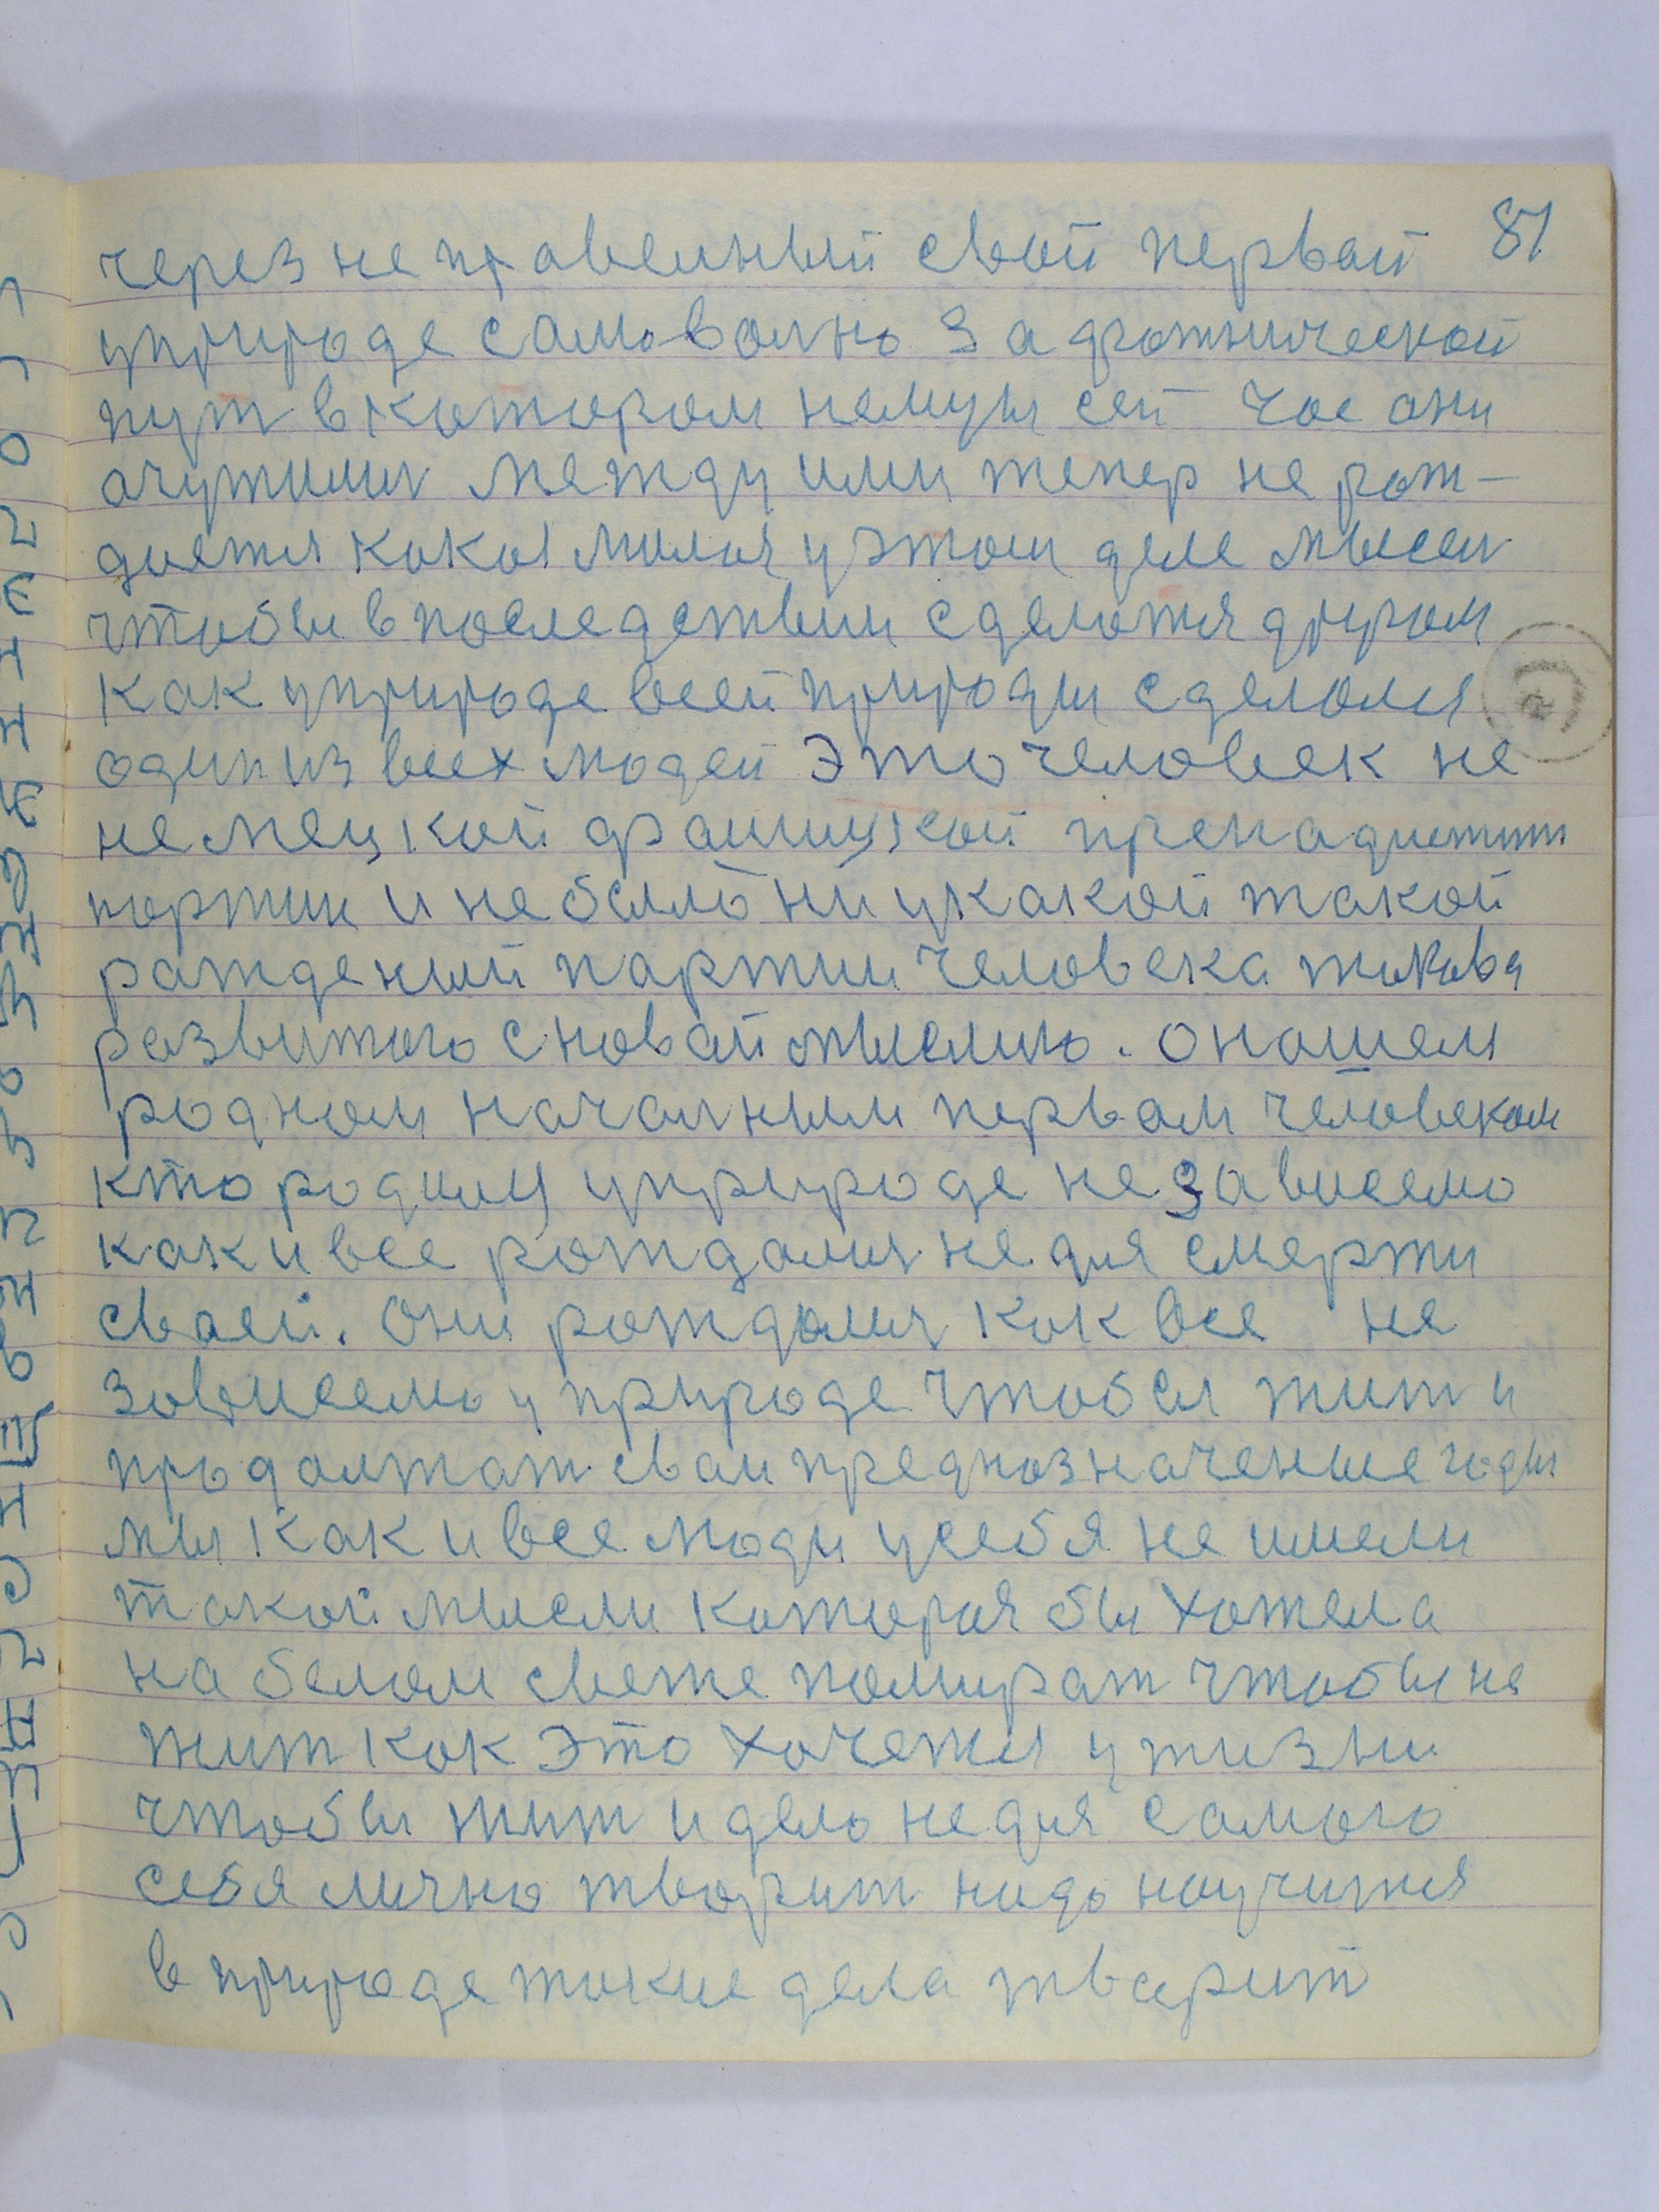 87
через не правелный свой первай
уприроде самоволно За дротнической
пут вкотором немцы сей час они
очутилис между ими тепер не рож-
дается какая милая уэтом деле мысел
чтобы впоследствии сделатся другом
как уприроде всей природы сделался
один из всех людей Это человек не
немецкой фашиской принадлежит
партии и не было ни укакой такой
рожденый партии человека такова
развитого сновай мыслию. онашем
родном началным первам человеком
кто родилц уприроде независемо
как и все рождалис не для смерти
сваей. Они рождалис как все не
зависемо уприроде чтобы жит и
продолжат сваи предназначение годы
мы как и все люди усебя не имели
такой мысли которая бы хотела
на белом свете помират чтобы не
жит как это хочется ужизни
чтобы жит и дело не для самого
себя лично творит надо научится
в природе такие дела тварит